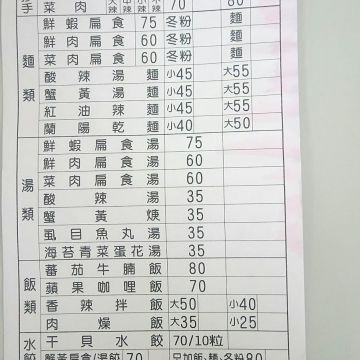 手 菜肉 大辣 中辣 小辣 不辣 70 80
鮮蝦扁食 75 冬粉 麵
鮮肉扁食 60 冬粉 麵
菜肉扁食 60 冬粉 麵
麵類
酸辣湯麵 小45 大55
蟹黃湯麵 小45 大55
紅油辣麵 小45 大55
蘭陽乾麵 小40 大50
湯類
鮮蝦扁食湯 75
鮮肉扁食湯 60
菜肉扁食湯 60
酸辣湯 35
蟹黃焿 35
虱目魚丸湯 35
海苔青菜蛋花湯 35
飯類
蕃茄牛腩飯 80
蘋果咖哩飯 70
香辣拌飯 大50 小40
肉燥飯 大35 小25
水餃
干貝水餃 70/10粒
蟹黃扁食/湯餃 70 另加飯、麵、冬粉80